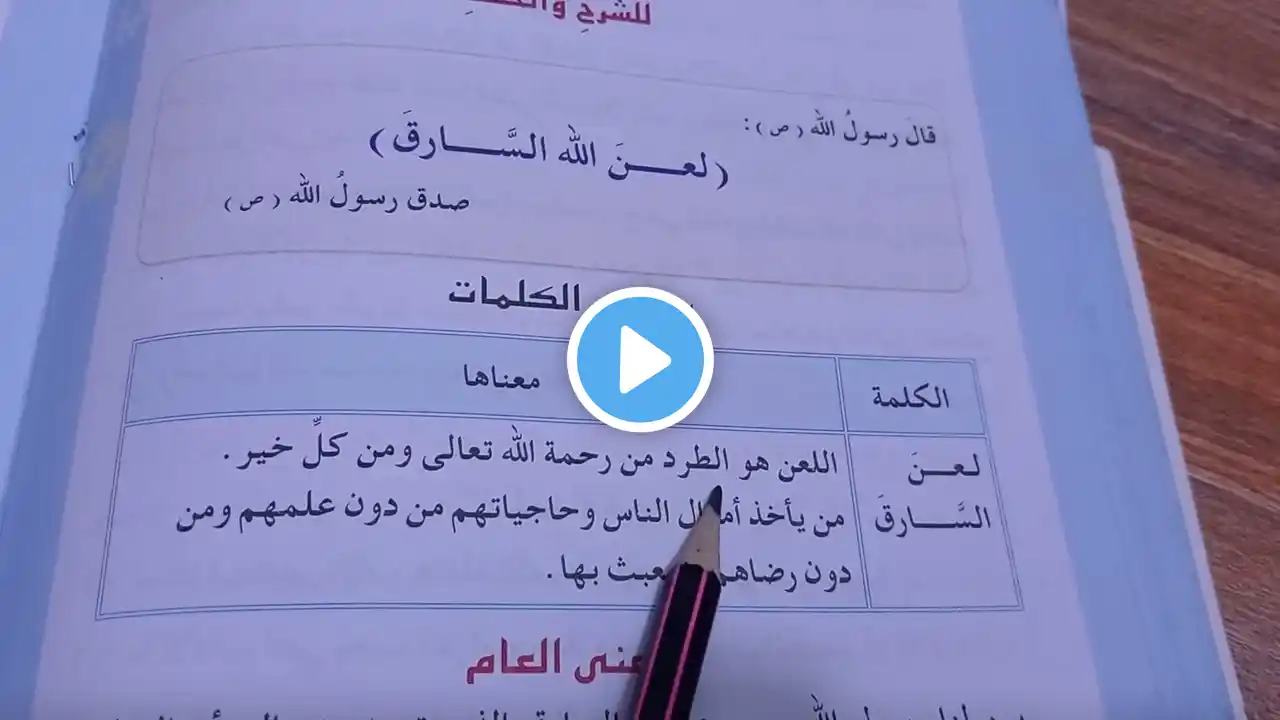 للشرحِ
قالَ رسولُ الله (ص):
(لعـــنَ الله السَّـــارقَ)
صدق رسولُ الله (ص)
الكلمات
الكلمة معناها
لعـــنَ اللعن هو الطرد من رحمة الله تعالى ومن كلِّ خير.
السَّـــارقَ من يأخذ الناس وحاجياتهم من دون علمهم ومن
دون بها.
العام